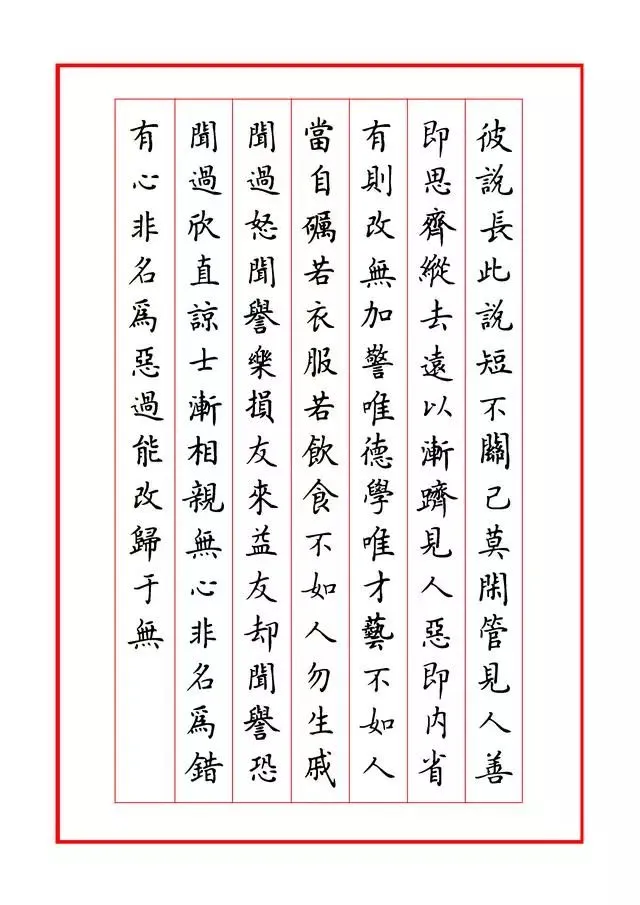 彼說長此說短不關己莫閑管見人善
即思齊縱去遠以漸躋見人惡即內省
有則改無加警唯德學唯才藝不如人
當自礪若衣服若飲食不如人勿生戚
聞過怒聞譽樂損友來益友却聞譽恐
聞過欣直諒士漸相親無心非名爲錯
有心非名爲惡過能改歸于無